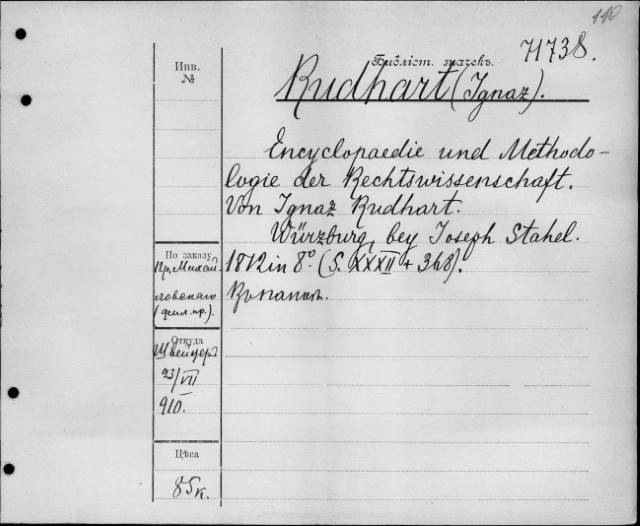 110
Библіот. значекъ. 71738.
Инв.
№
Rudhart (Ignaz).
Encyclopaedie und Methodo-
logie der Rechtswissenschaft.
Von Ignaz Rudhart.
Würzburg, bey Joseph Stahel.
1812 in 8° (S. XXXII + 368).
Въ папкѣ.
По заказу
Пр. Михай
ловскаго
Откуда
Швейцер
23/VII
910.
Цѣна
85 к.